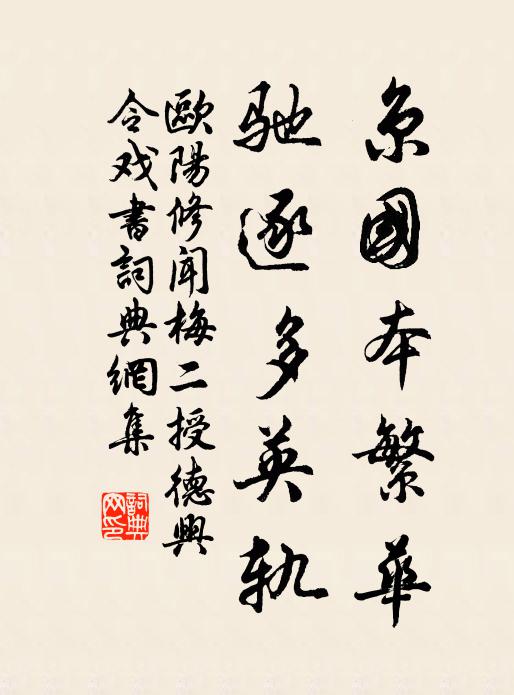 京國本繁華
馳逐多英軌
歐陽修闻梅二授德興
令戏書詞典網集
詞典网印